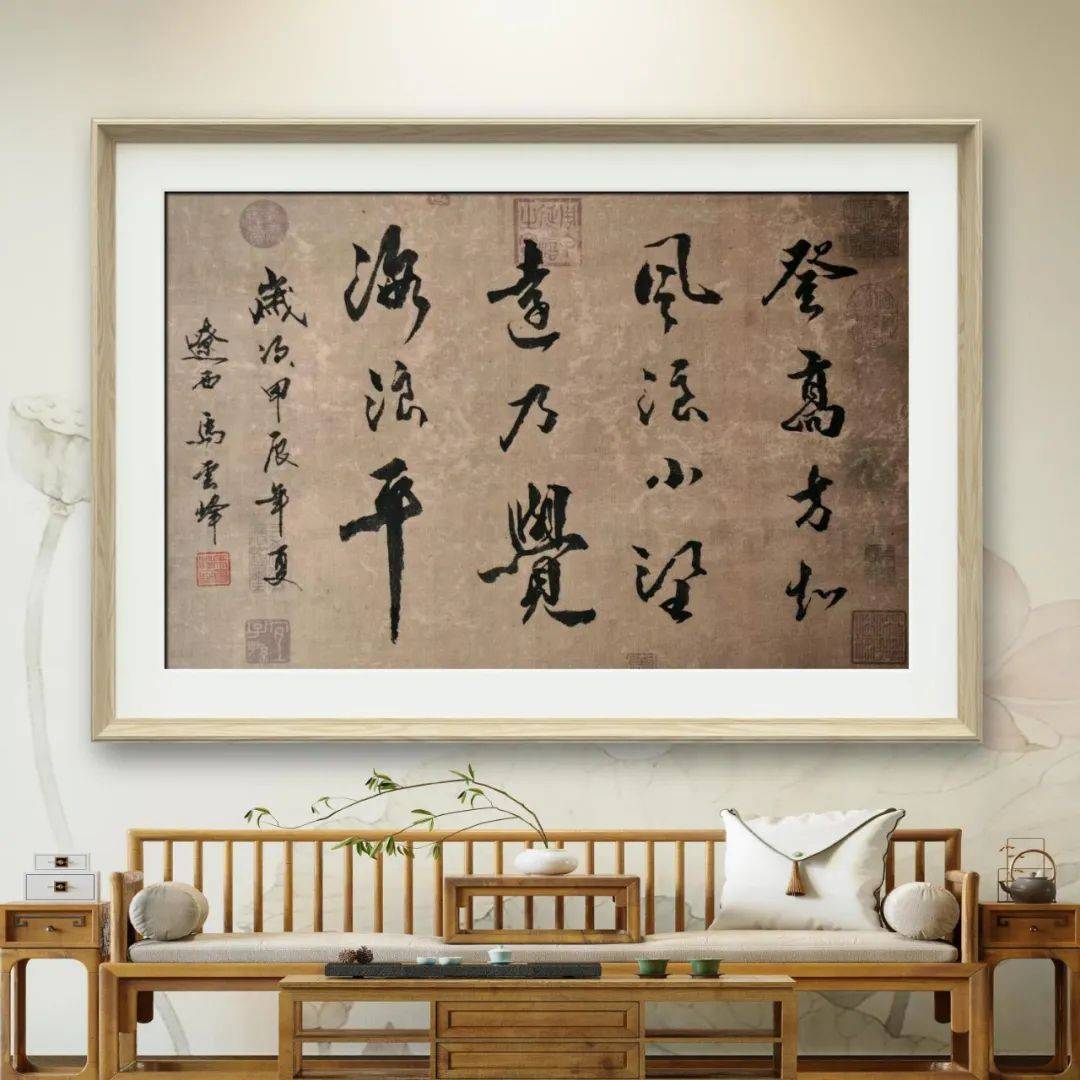 登高方知
風浪小望
遠乃覺
海浪平
歲次甲辰年夏
遼西馬雲峰